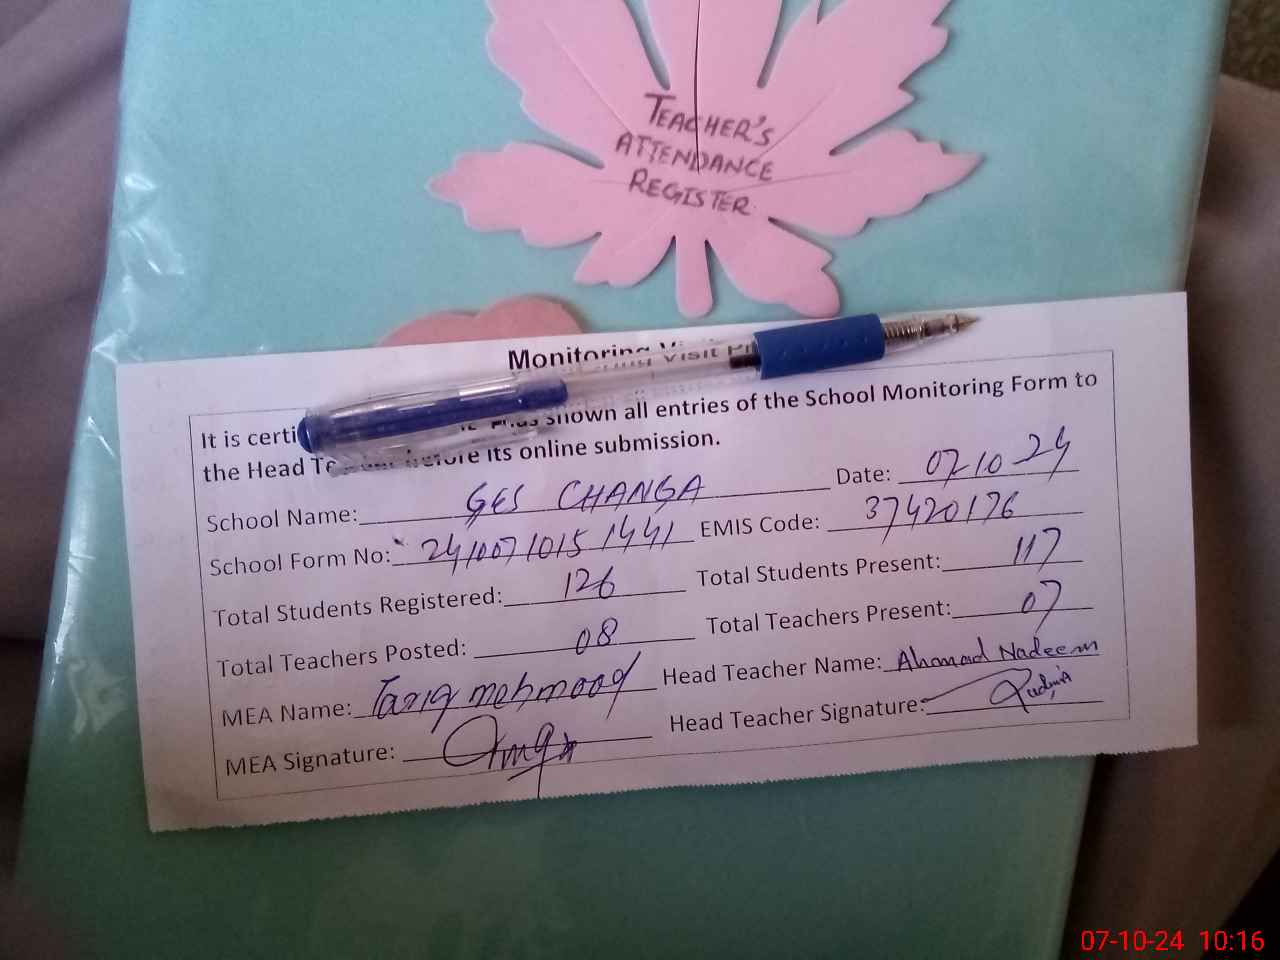 TEACHER'S
ATTENDANCE
REGISTER
Monitoring Visit
It is shown all entries of the School Monitoring Form to
the Head before its online submission.
School Name: GES CHANGA Date: 07 10 24
School Form No: 241007 1015 1441 EMIS Code: 37420176
Total Students Registered: 126 Total Students Present: 117
Total Teachers Posted: 08 Total Teachers Present: 07
MEA Name: Tariq mehmood Head Teacher Name: Ahmad Nadeem
MEA Signature: Head Teacher Signature:
07-10-24 10:16